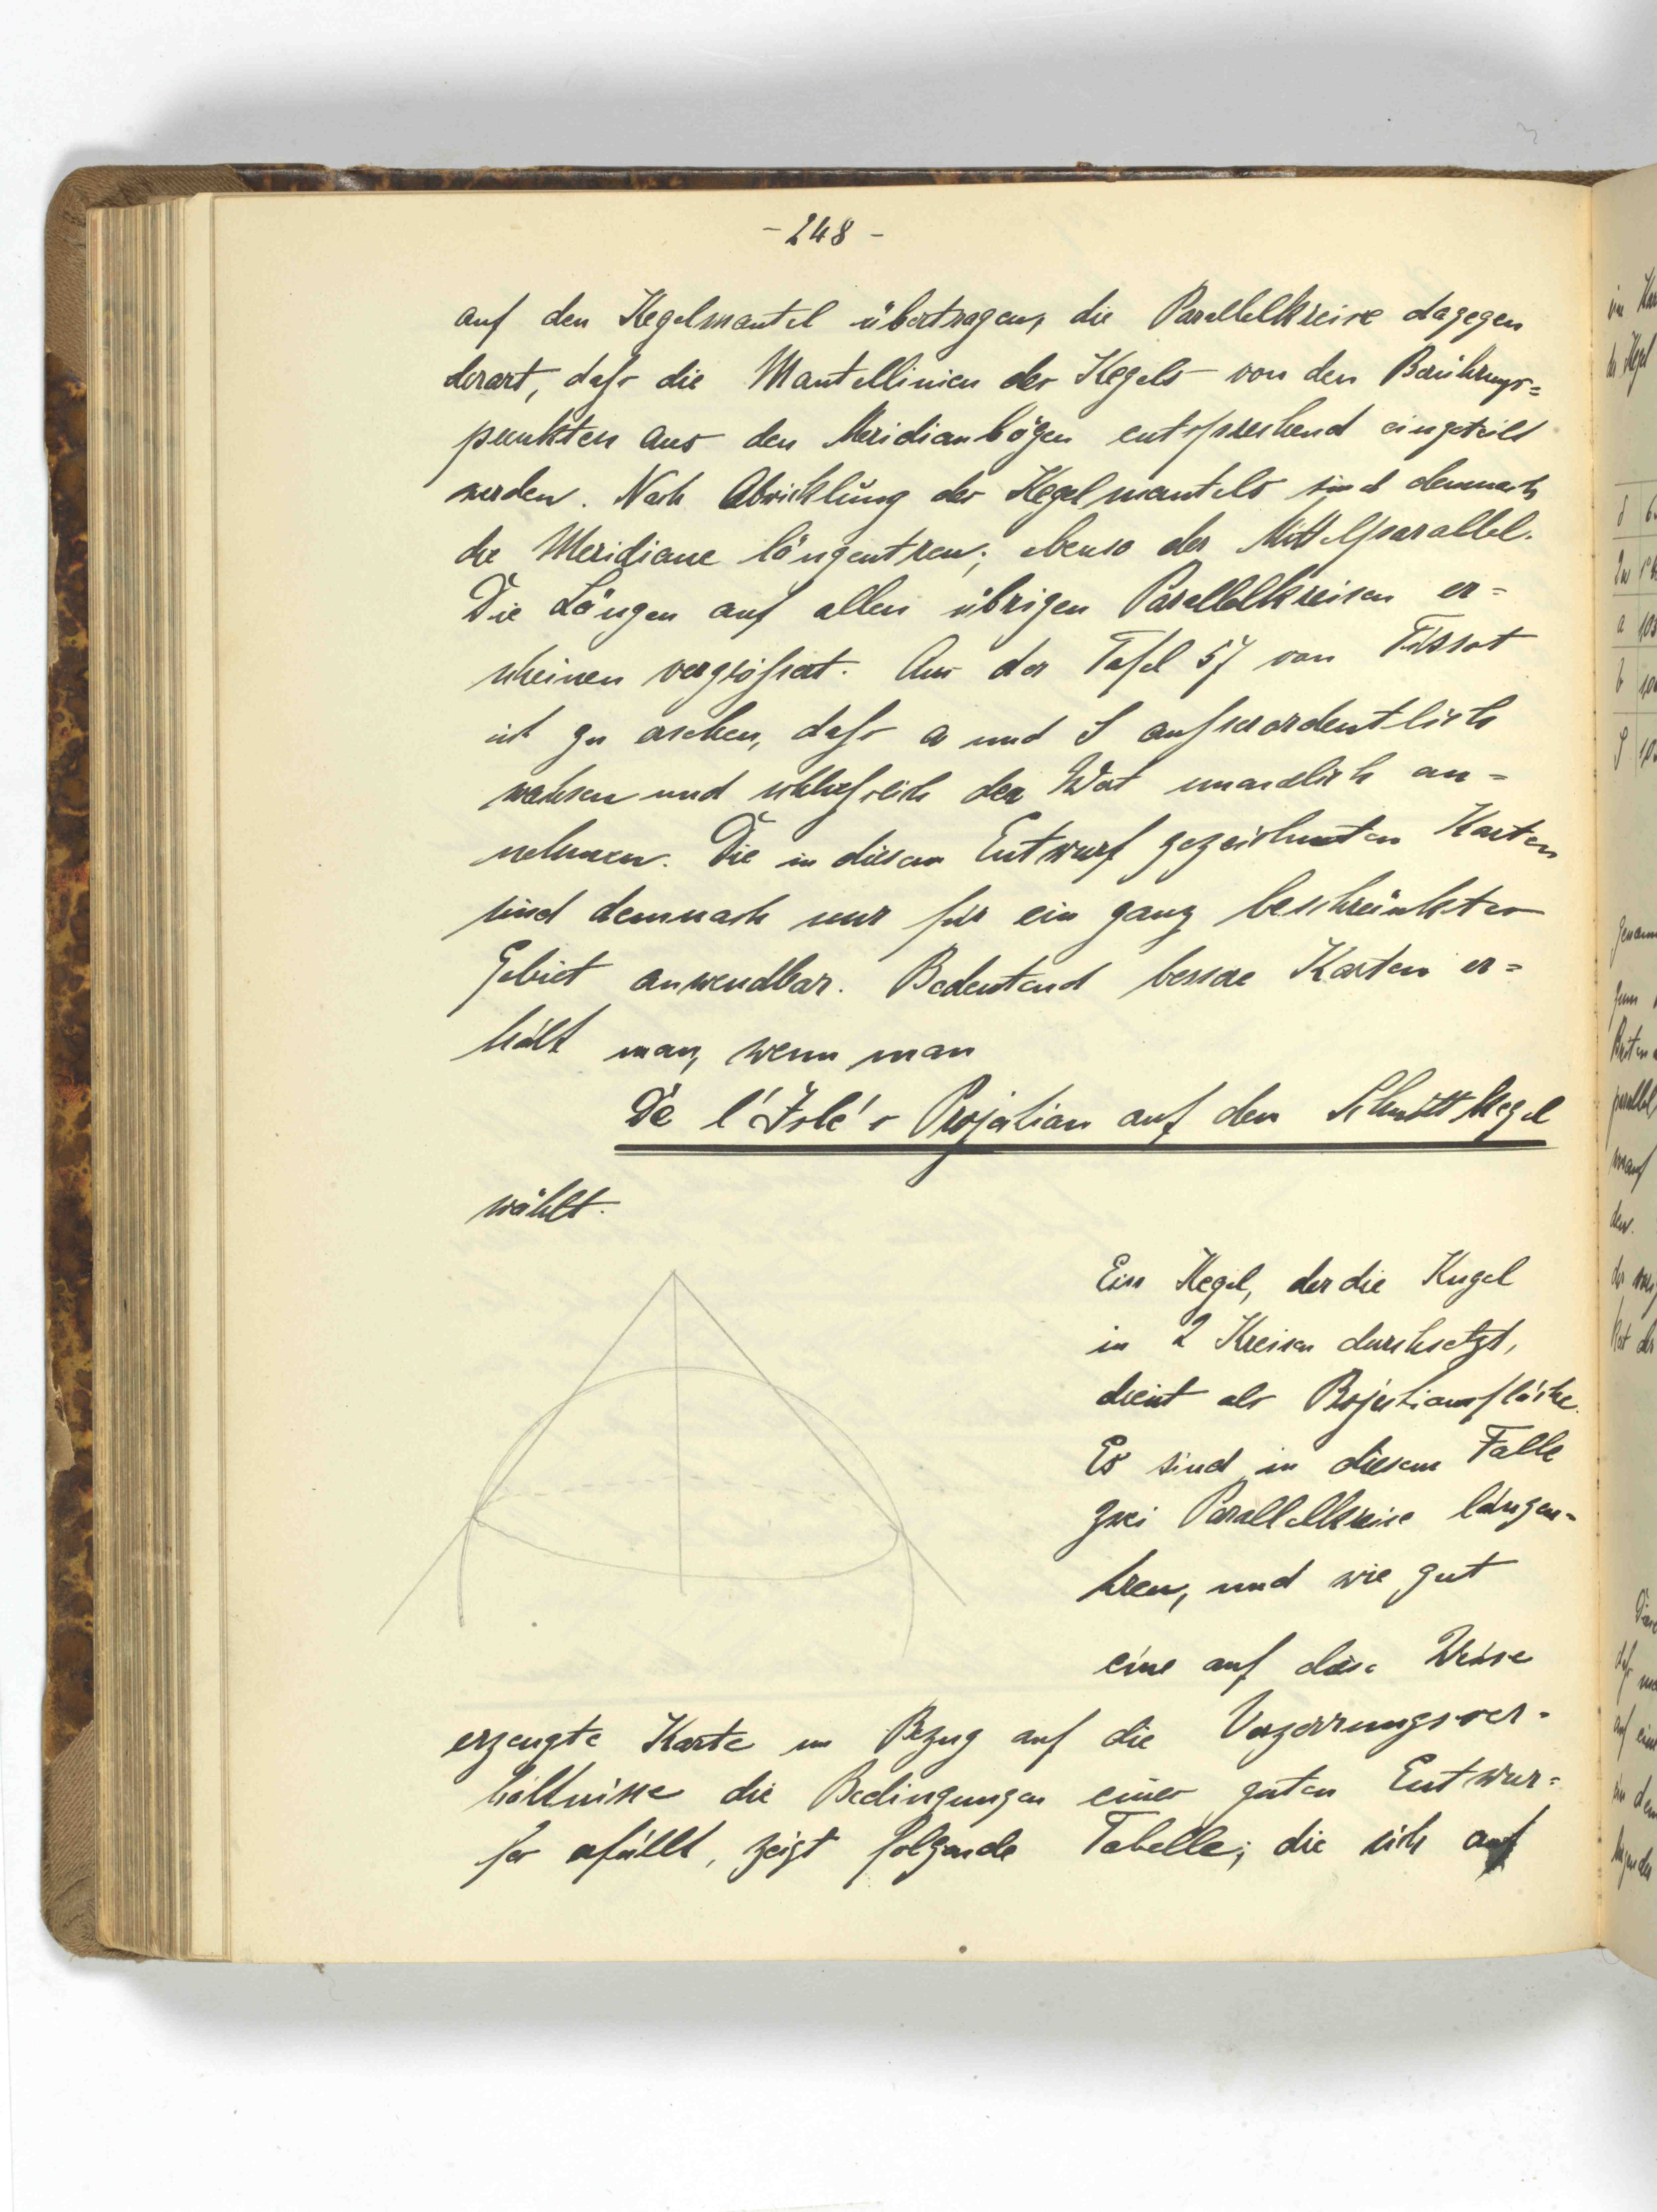 - 248 -
auf den Kegelmantel übertragen, die Parallelkreise dagegen
derart, dass die Mantellinien des Kegels von den Berührungs=
punkten aus den Meridianbögen entsprechend eingeteilt
werden. Nach Abwicklung des Kegelmantels sind demnach
die Meridiane längentreu; ebenso der Mittelparallel.
Die Längen auf allen übrigen Parallelkreisen er=
scheinen vergrössert. Aus der Tafel 57 von Tissot
ist zu ersehen, dass a und S ausserordentlich
wachsen und schliesslich den Wert unendlich an=
nehmen. Die in diesem Entwurf gezeichneten Karten
sind demnach nur für ein ganz beschränktes
Gebiet anwendbar. Bedeutend bessere Karten er=
hält man, wenn man
De l'Isle's Projektion auf den Schnittkegel
wählt.
Ein Kegel, der die Kugel
in 2 Kreisen durchsetzt,
dient als Projektionsfläche.
Es sind in diesem Falle
zwei Parallelkreise längen=
treu, und wie gut
eine auf diese Weise
erzeugte Karte in Bezug auf die Verzerrungsver=
hältnisse die Bedingungen eines guten Entwur=
fes erfüllt, zeigt folgende Tabelle; die sich auf